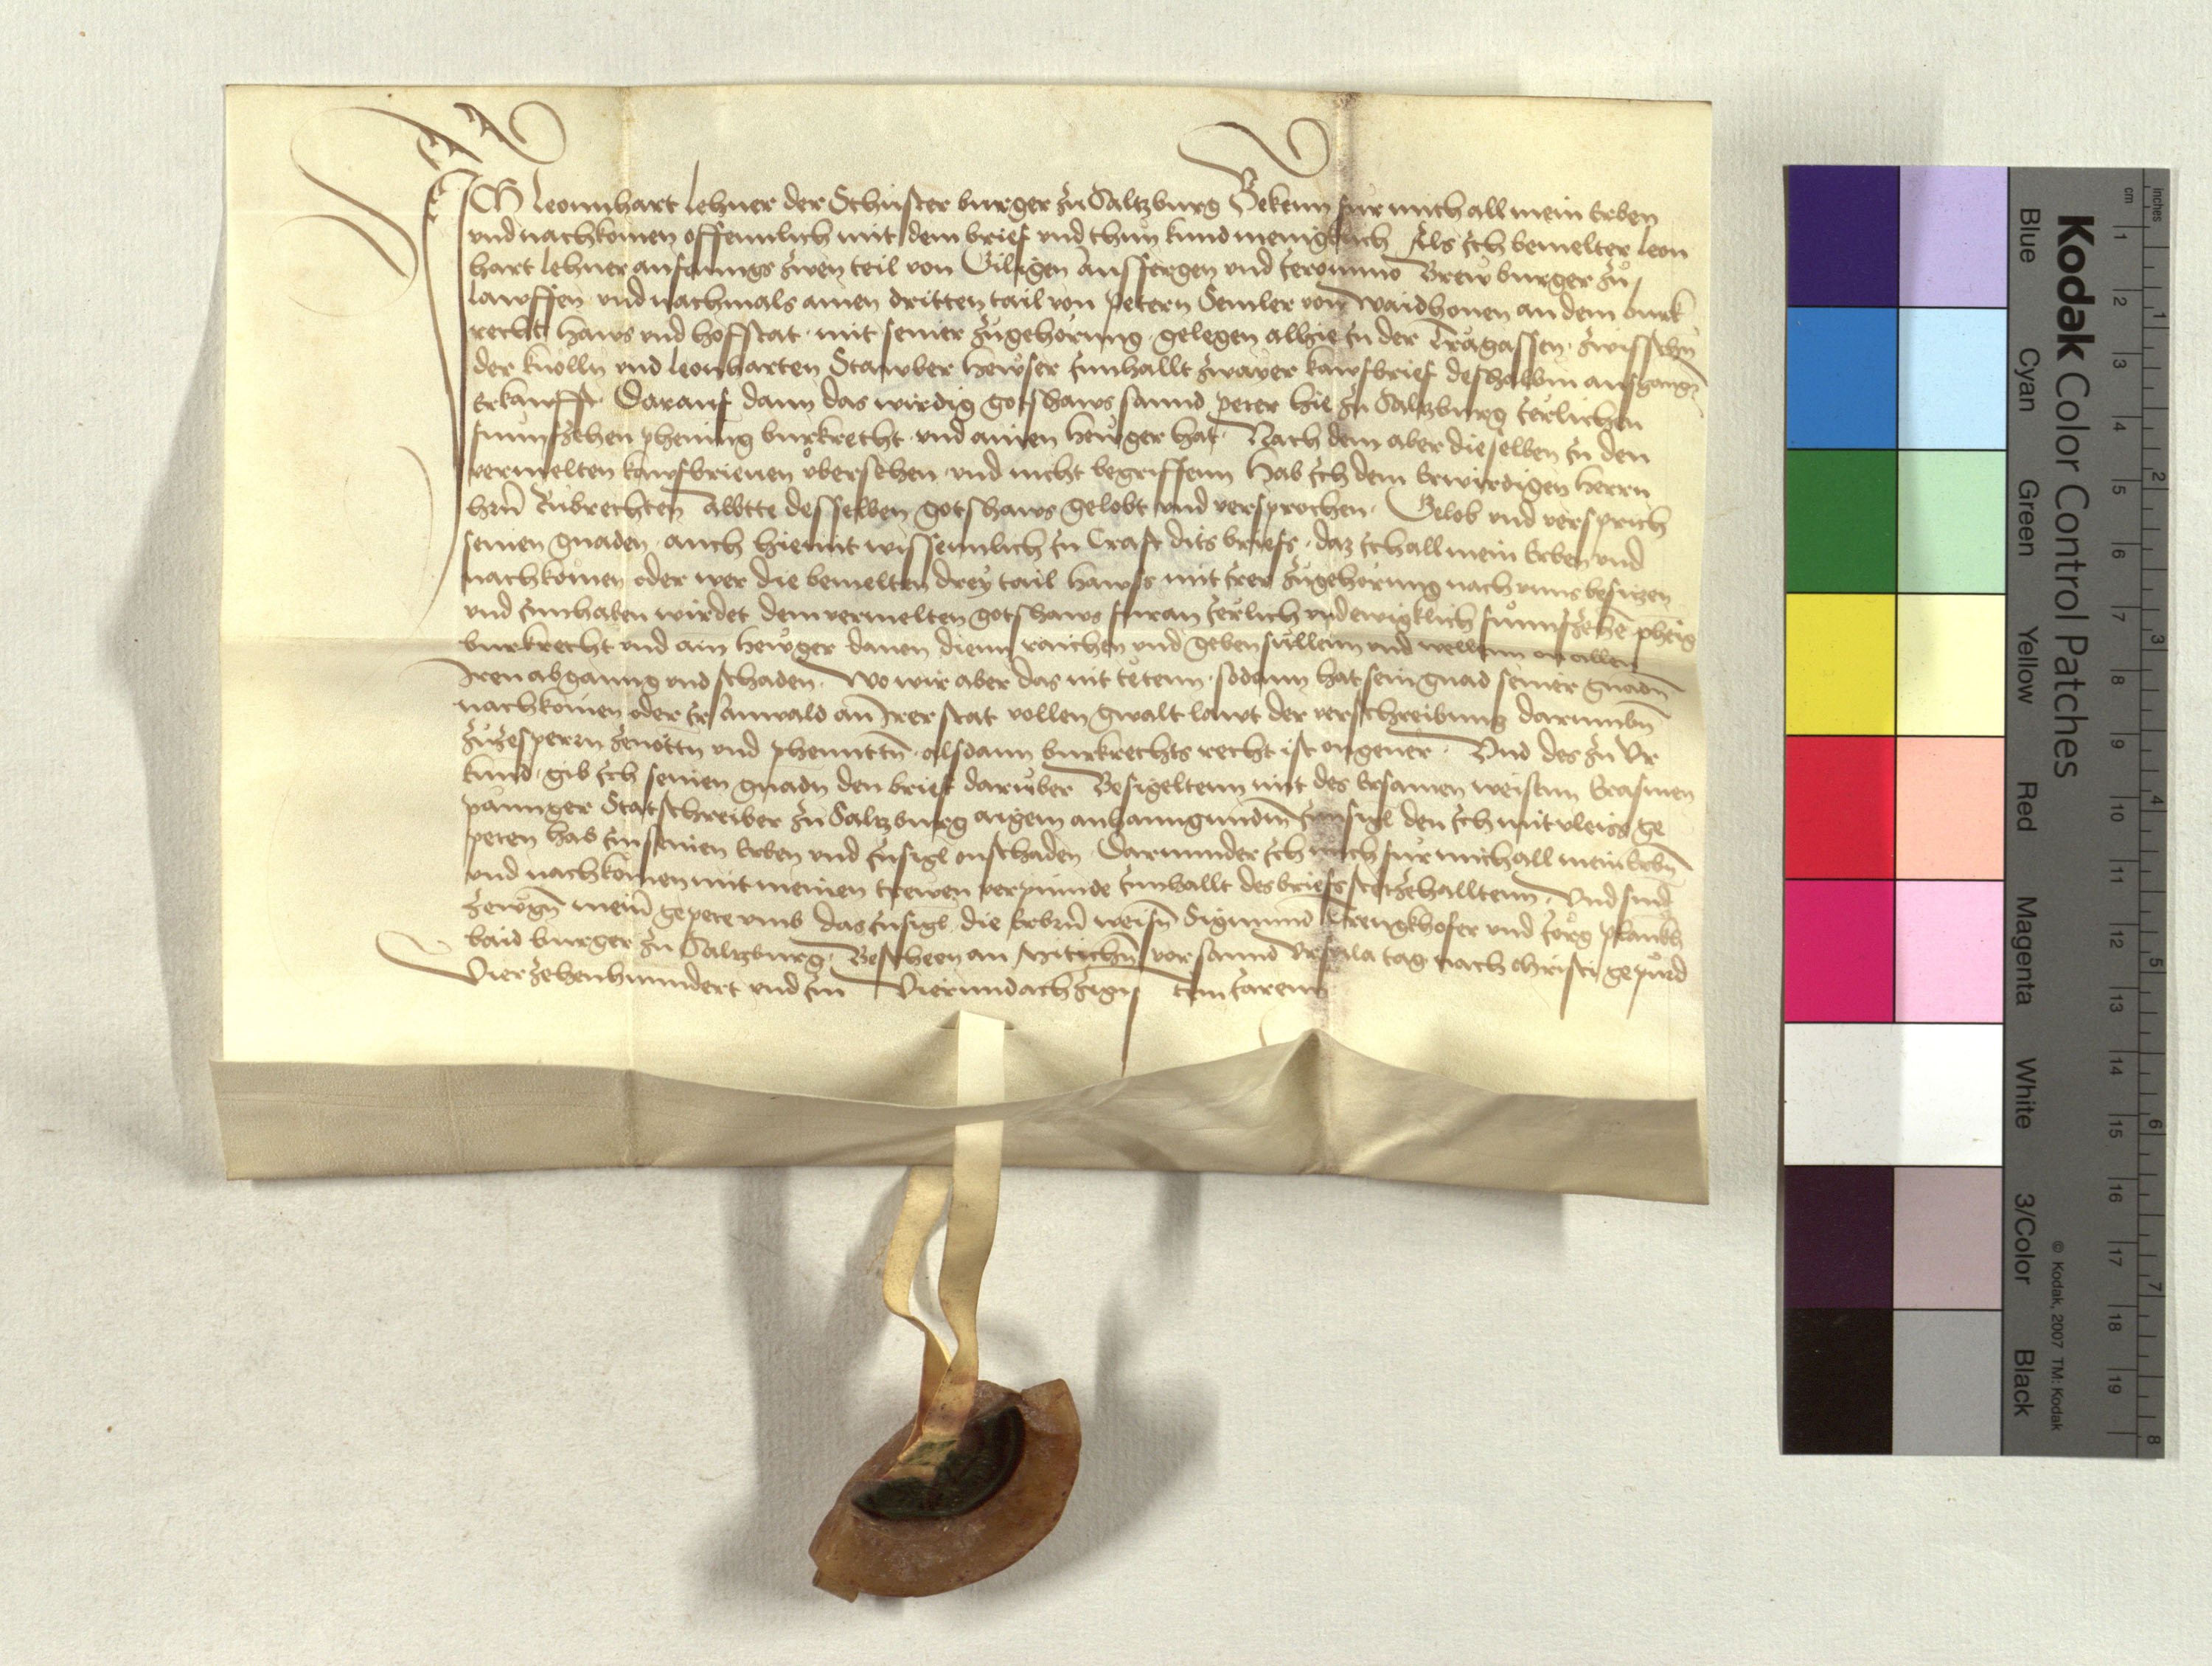 ICH Leonnhart Lehner der Schuster burger zu Saltzburg Bekenn fur mich all mein Erben
vnd nachkomen offennlich mit dem brief vnd thun kund meniglich Als Ich bemelter Leon
hart Lehner anfanngs zwen teil von Giligen ausffergen vnd Jeronimo Brew burger zu
Lawffen vnd nachmals ainen dritten tail von Petern Semler von Waidhouen an dem burk
recht haws vnd hofstat mit seiner zugehorung gelegen alhie in der Tragassen zwisschn
der Knolln vnd Leonharten Stawber hewser Innhallt zwaier kawfbrief deshalbm ausgangn
Erkaufft Darauf dann das wirdig gotshaws sannd Peter hie zu Saltzburg Jerlichen
funnfzehen phening burkrecht vnd ainen hewger hat Nach dem aber dieselben in den
vermelten kawfbrieuen vbersehen vnd nicht begriffenn Hab Ich dem Erwirdigen herrn
hern Rubrechten Abbtte desselben gotshaws gelobt vnd versprochen Gelob vnd versprich
seinen gnaden auch hiemit wissenntlich in Craft dits briefs daz Ich all mein Erben vnd
nachkomen oder wer die bemelten drey tail hawss mit Irer zugehorung nach vnns besitzen
vnd Innhaben wirdet dem vermelten gotshaws furan Jerlich vnd ewigklich funnfzehe phenig
burkrecht vnd ain hewger dauon dienn raichen vnd geben sullenn vnd wellenn on allen
Iren abganng vnd schaden Wo wir aber das nit tetenn sodann hat sein gnad seiner gnadn
nachkomen oder Ir Anwald an Irer stat vollen gwalt lawt der verschreibung darumbn
zuzesperrn zenottn vnd phenntn alsdann burkrechts recht ist ongeuer Vnd des zu Vr
kund gib Ich seinen gnadn den brief daruber Besigeltenn mit des Ersamen weisenn Erasmen
panniger Statschreiber zu Saltzburg aigem anhanngundm Innsigl den Ich mit vleiss ge
peten hab Im seinen Erben vnd Insigl onschaden Darunnder Ich mich fur mich all mein Erbn
vnd nachkomen mit meinen trewen verpinnde Innhallt des briefs stet zehalltenn Vnd sind
zewgn meiner gepete vmb das Insigl die Erbern weisn Sigmund Trengkhofer vnd Jorg plankh
baid burger zu Saltzburg Bescheen an Mitichn vor sannd Vrsula tag nach Christi gepurd
Vierzehenhunndert vnd Im Vierundachzigisten Jarenn
Kodak Color Control Patches
Blue Cyan Green Yellow Red Magenta White 3/Color Black
© Kodak, 2007 TM: Kodak
inches
cm
1 2 3 4 5 6 7 8 9 10 11 12 13 14 15 16 17 18 19
1 2 3 4 5 6 7 8